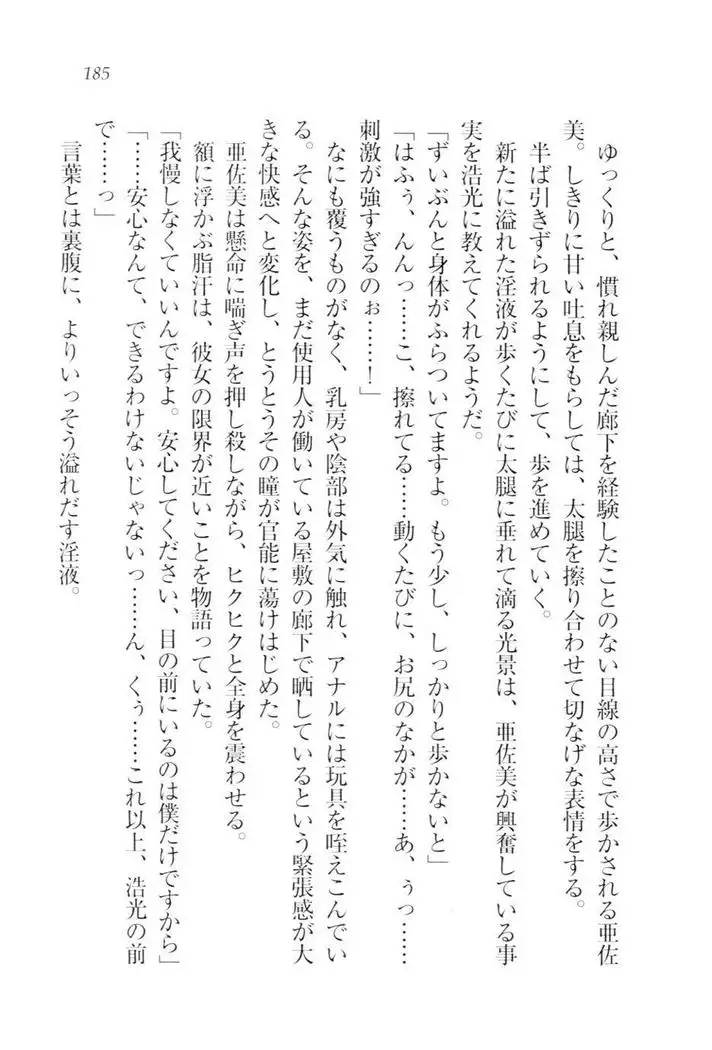 185
ゆっくりと、慣れ親しんだ廊下を経験したことのない目線の高さで歩かされる亜佐
美。しきりに甘い吐息をもらしては、太腿を擦り合わせて切なげな表情をする。
半ば引きずられるようにして、歩を進めていく。
新たに溢れた淫液が歩くたびに太腿に垂れて滴る光景は、亜佐美が興奮している事
実を浩光に教えてくれるようだ。
「ずいぶんと身体がふらついてますよ。もう少し、しっかりと歩かないと」
「はふぅ、んんっ……こ、擦れてる……動くたびに、お尻のなかが……あ、ぅっ……
刺激が強すぎるのぉ……！」
なにも覆うものがなく、乳房や陰部は外気に触れ、アナルには玩具を咥えこんでい
る。そんな姿を、まだ使用人が働いている屋敷の廊下で晒しているという緊張感が大
きな快感へと変化し、とうとうその瞳が官能に蕩けはじめた。
亜佐美は懸命に喘ぎ声を押し殺しながら、ヒクヒクと全身を震わせる。
額に浮かぶ脂汗は、彼女の限界が近いことを物語っていた。
「我慢しなくていいんですよ。安心してください、目の前にいるのは僕だけですから」
「……安心なんて、できるわけないじゃないっ……ん、くぅ……これ以上、浩光の前
で……っ」
言葉とは裏腹に、よりいっそう溢れだす淫液。